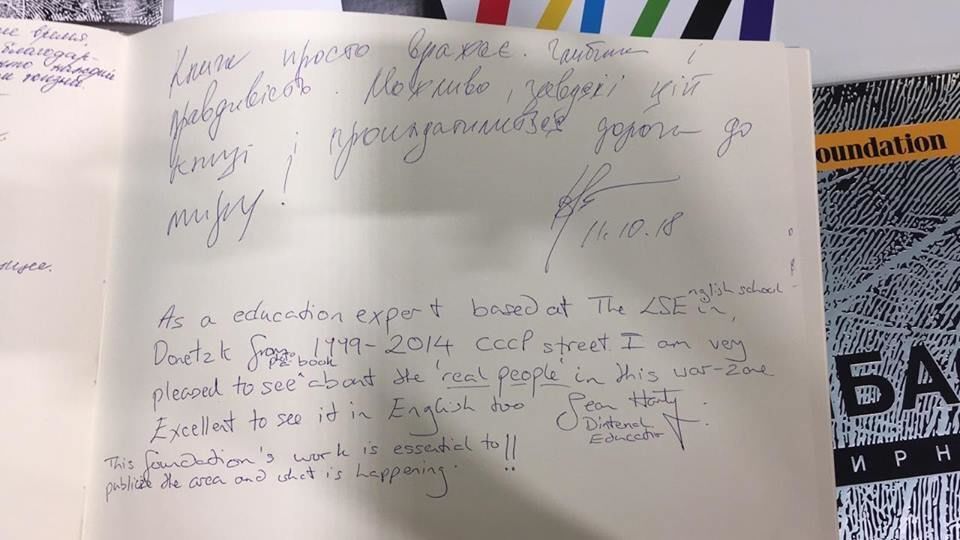 ие время
благодар-
Книга просто вражає. Глибина і
правдивість. Можливо, завдяки цій
книзі і прокладатиметься дорога до
миру!
11.10.18
As a education expert based at The LSEnglish school
in, Donetzk from 1999-2014 CCCP street. I am very
pleased to see a book about the 'real people' in this war-zone
Excellent to see it in English too
Sean
Educator
This foundation's work is essential to !!
publicize the area and what is happening.
oundation
БАС
ИРН